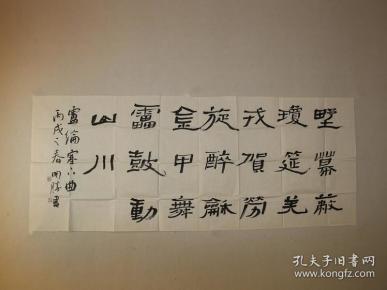 野幕蔽
瓊筵羌
戎賀勞
旋醉龢
金甲舞
靁鼓動
山川
盧綸塞下曲
丙戌之春
書
孔夫子旧书网
www.kongfz.com